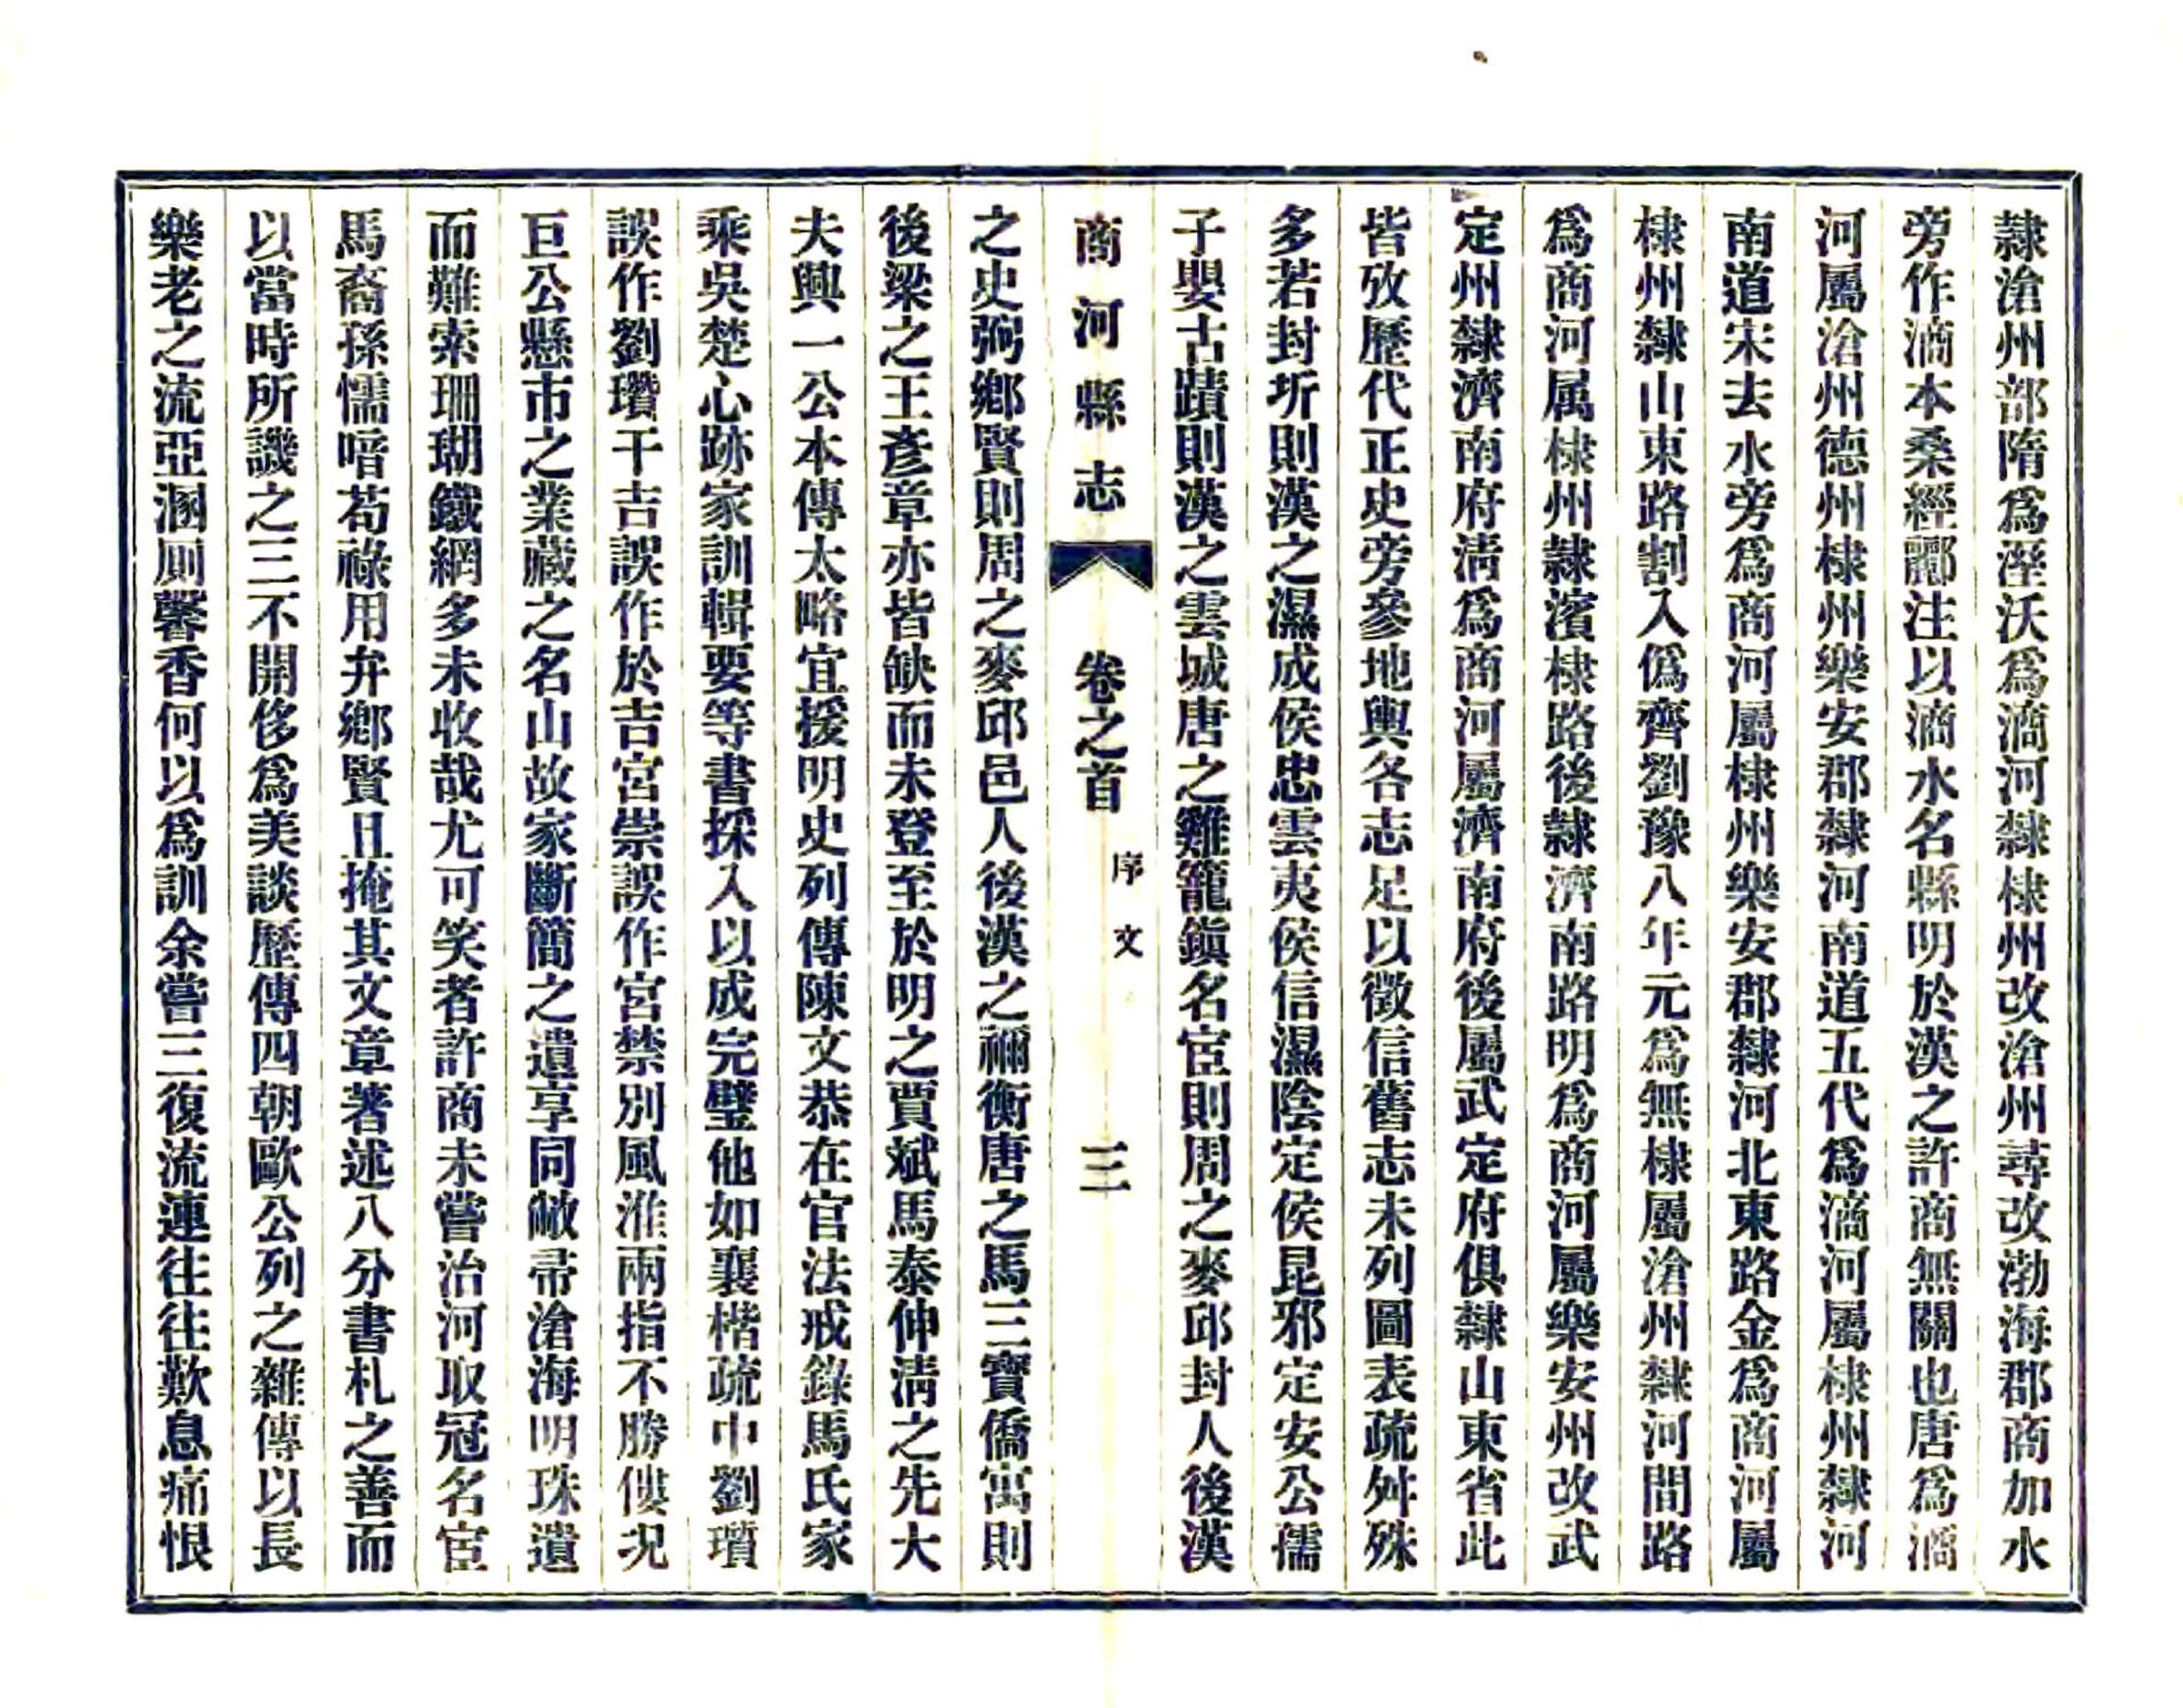 隸滄州部隋爲溼沃爲滳河隸棣州改滄州尋改渤海郡商加水
旁作滳本桑經酈注以滳水名縣明於漢之許商無關也唐爲滳
河屬滄州德州棣州樂安郡隸河南道五代爲滳河屬棣州隸河
南道宋去水旁爲商河屬棣州樂安郡隸河北東路金爲商河屬
棣州隸山東路割入僞齊劉豫八年元爲無棣屬滄州隸河間路
爲商河属棣州隸濱棣路後隸濟南路明爲商河屬樂安州改武
定州隸濟南府淸爲商河屬濟南府後屬武定府俱隸山東省此
皆攷歷代正史旁參地輿各志足以徵信舊志未列圖表疏舛殊
多若封圻則漢之濕成侯忠雲夷侯信濕陰定侯昆邪定安公孺
子嬰古蹟則漢之雲城唐之雞籠鎭名宦則周之麥邱封人後漢
商河縣志 卷之首 序文 三
之史弼鄉賢則周之麥邱邑人後漢之禰衡唐之馬三寶僑寓則
後梁之王彥章亦皆缺而未登至於明之賈斌馬泰仲淸之先大
夫興一公本傳太略宜援明史列傳陳文恭在官法戒錄馬氏家
乘吳楚心跡家訓輯要等書採入以成完璧他如襄楷疏中劉瓆
誤作劉瓚干吉誤作於吉宮崇誤作宮禁別風淮兩指不勝僂況
巨公懸市之業藏之名山故家斷簡之遺享同敝帚滄海明珠遺
而難索珊瑚鐵網多未收哉尤可笑者許商未嘗治河取冠名宦
馬裔孫懦喑苟祿用弁鄉賢且掩其文章著述八分書札之善而
以當時所譏之三不開侈爲美談歷傳四朝歐公列之雜傳以長
樂老之流亞溷厠馨香何以爲訓余嘗三復流連往往歎息痛恨